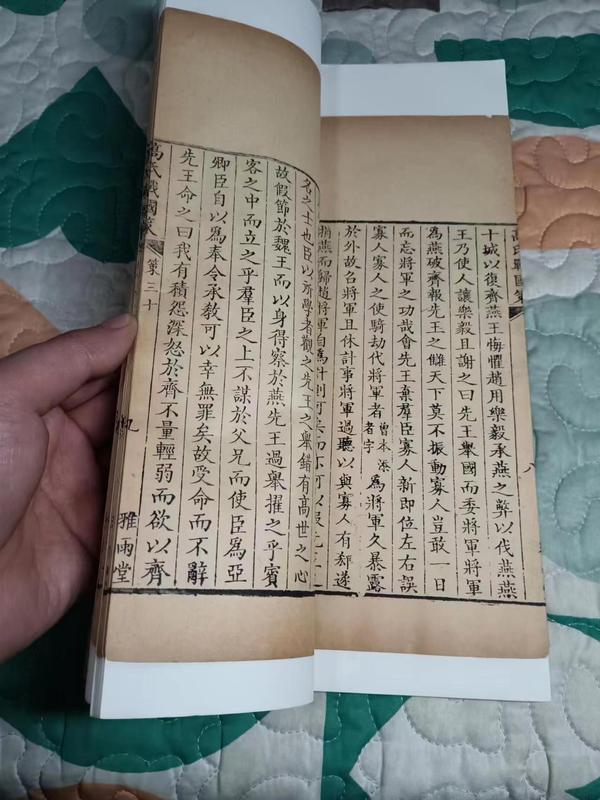 高氏戰國策
八
十城以復齊燕王悔懼趙用樂毅承燕之弊以伐燕燕
王乃使人讓樂毅且謝之曰先王舉國而委將軍將軍
為燕破齊報先王之讎天下莫不振動寡人豈敢一日
而忘將軍之功哉會先王棄羣臣寡人新即位左右誤
寡人寡人之使騎劫代將軍者曾本添者字為將軍久暴露
於外故召將軍且休計事將軍過聽以與寡人有郄遂
捐燕而歸趙將軍自為計則可矣而亦可以報先王
名之士也臣以所學者觀之先王之舉錯有高世之心
故假節於魏王而以身得察於燕先王過舉擢之乎賓
客之中而立之乎羣臣之上不謀於父兄而使臣爲亞
卿臣自以爲奉令承教可以幸無罪矣故受命而不辭
先王命之曰我有積怨深怒於齊不量輕弱而欲以齊
高氏戰國策 第三十
九
雅雨堂